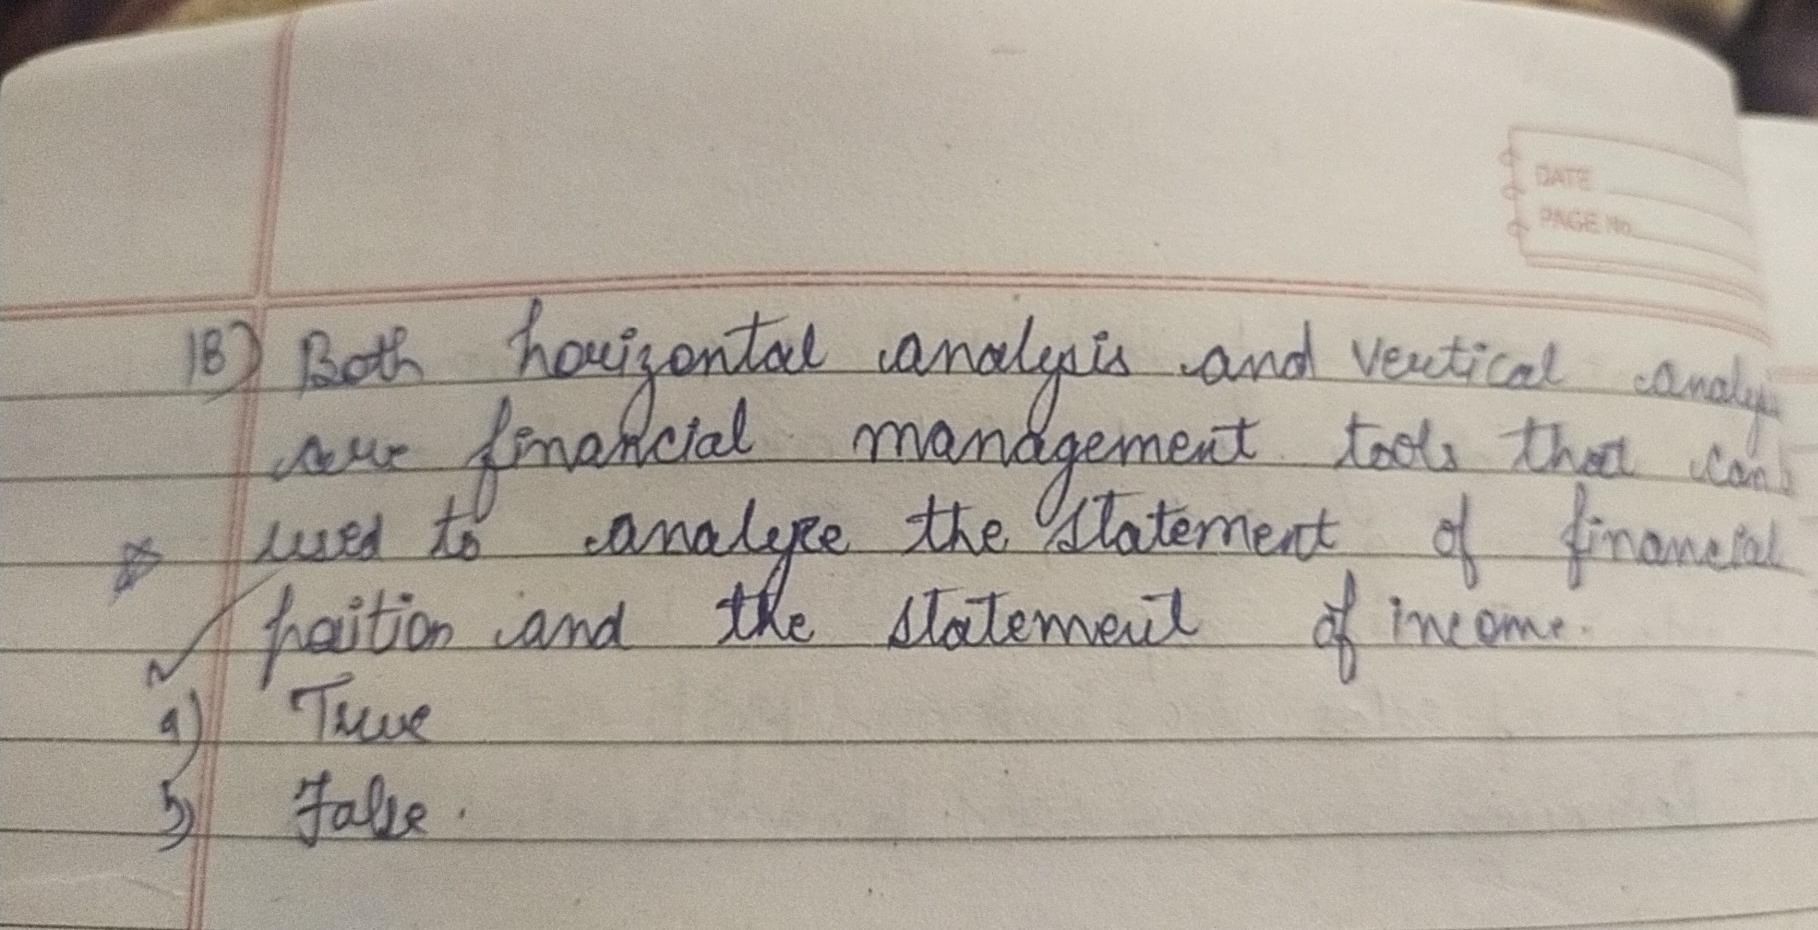 DATE
PAGE No.
18) Both horizontal analysis and vertical analys
are financial management tools that can
used to analyze the statement of financial
position and the statement of income.
a) True
b) False.